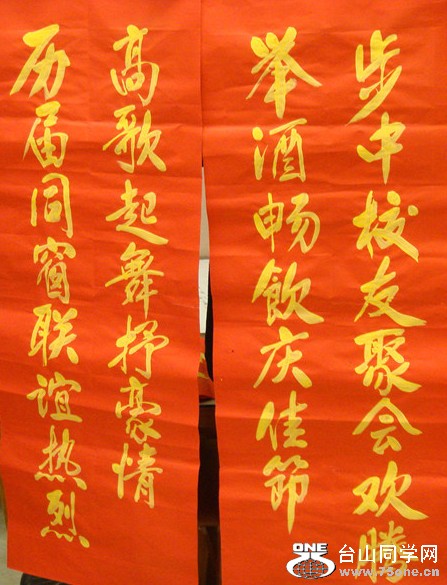 步中校友聚会欢腾
举酒畅飲庆佳節
历届同窗联谊热烈
高歌起舞抒豪情
ONE
台山同学网
www.75one.cn